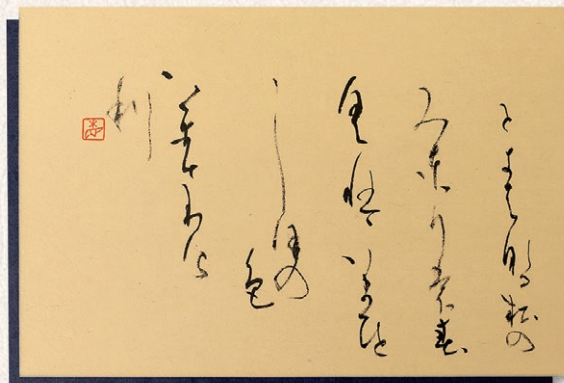 ときは那る松の
みとりも春
久連盤いまひと
しほの
色
まさりけ
利